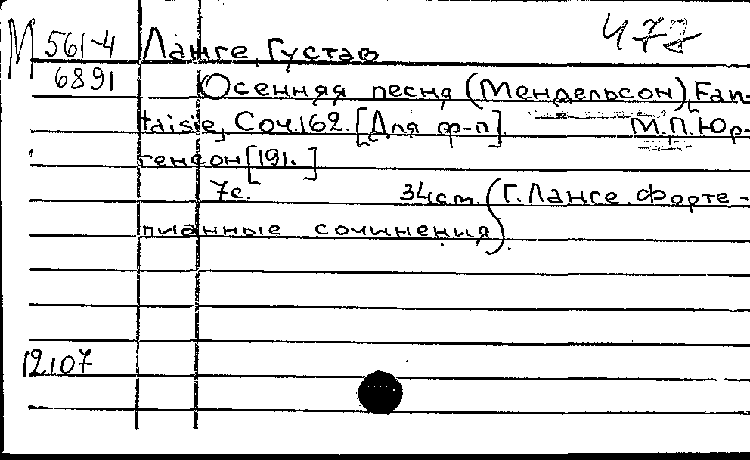 М 561-4 Ланге, Густав 477
6891 Осенняя песня (Мендельсон), Fan-
taisie, Соч.162. [Для ф-п]. М.П.Юр-
генсон [191. ]
7с. 34cm. (Г.Ланге. Форте-
пианные сочинения).
12107